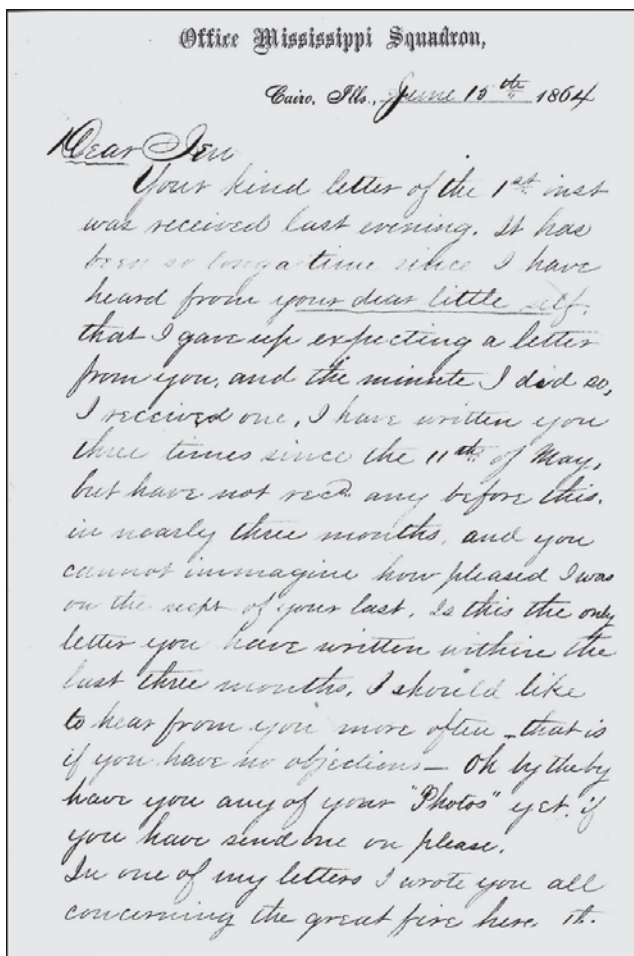 Office Mississippi Squadron,
Cairo, Ills., June 15th 1864
Dear Jen
Your kind letter of the 1st inst
was received last evening. It has
been so long a time since I have
heard from your dear little self,
that I gave up expecting a letter
from you, and the minute I did so,
I received one, I have written you
three times since the 11th of May,
but have not recd any before this,
in nearly three months, and you
cannot immagine how pleased I was
on the recpt of your last. Is this the only
letter you have written within the
last three months, I should like
to hear from you more often - that is
if you have no objections - Oh by the by
have you any of your "Photos" yet, if
you have send one on please.
In one of my letters I wrote you all
concerning the great fire here, it.